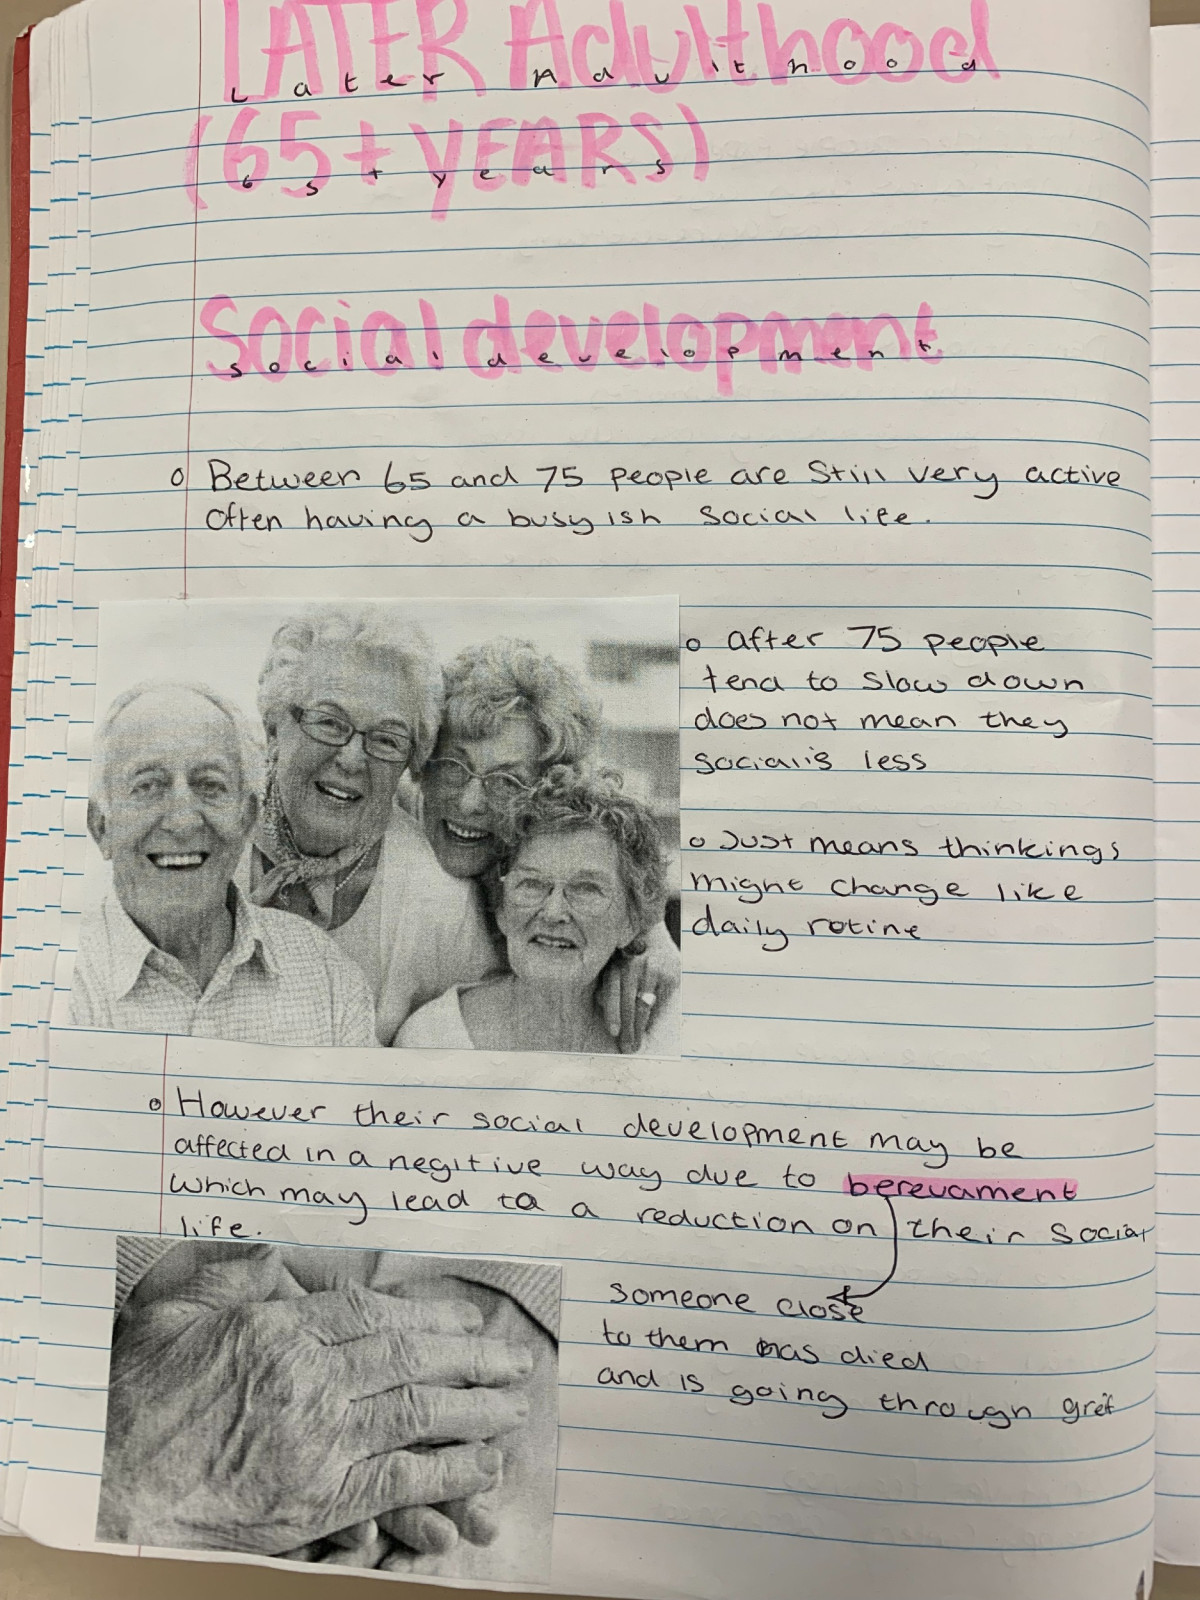 LATER Adulthood
Later Adulthood
(65+ YEARS)
65+ years
Social development
social development
Between 65 and 75 people are still very active
often having a busy ish social life.
after 75 people
tend to slow down
does not mean they
socialis less
Just means thinkings
might change like
daily rotine
However their social development may be
affected in a negitive way due to berevament
which may lead to a reduction on their social
life.
someone close
to them has died
and is going through greif